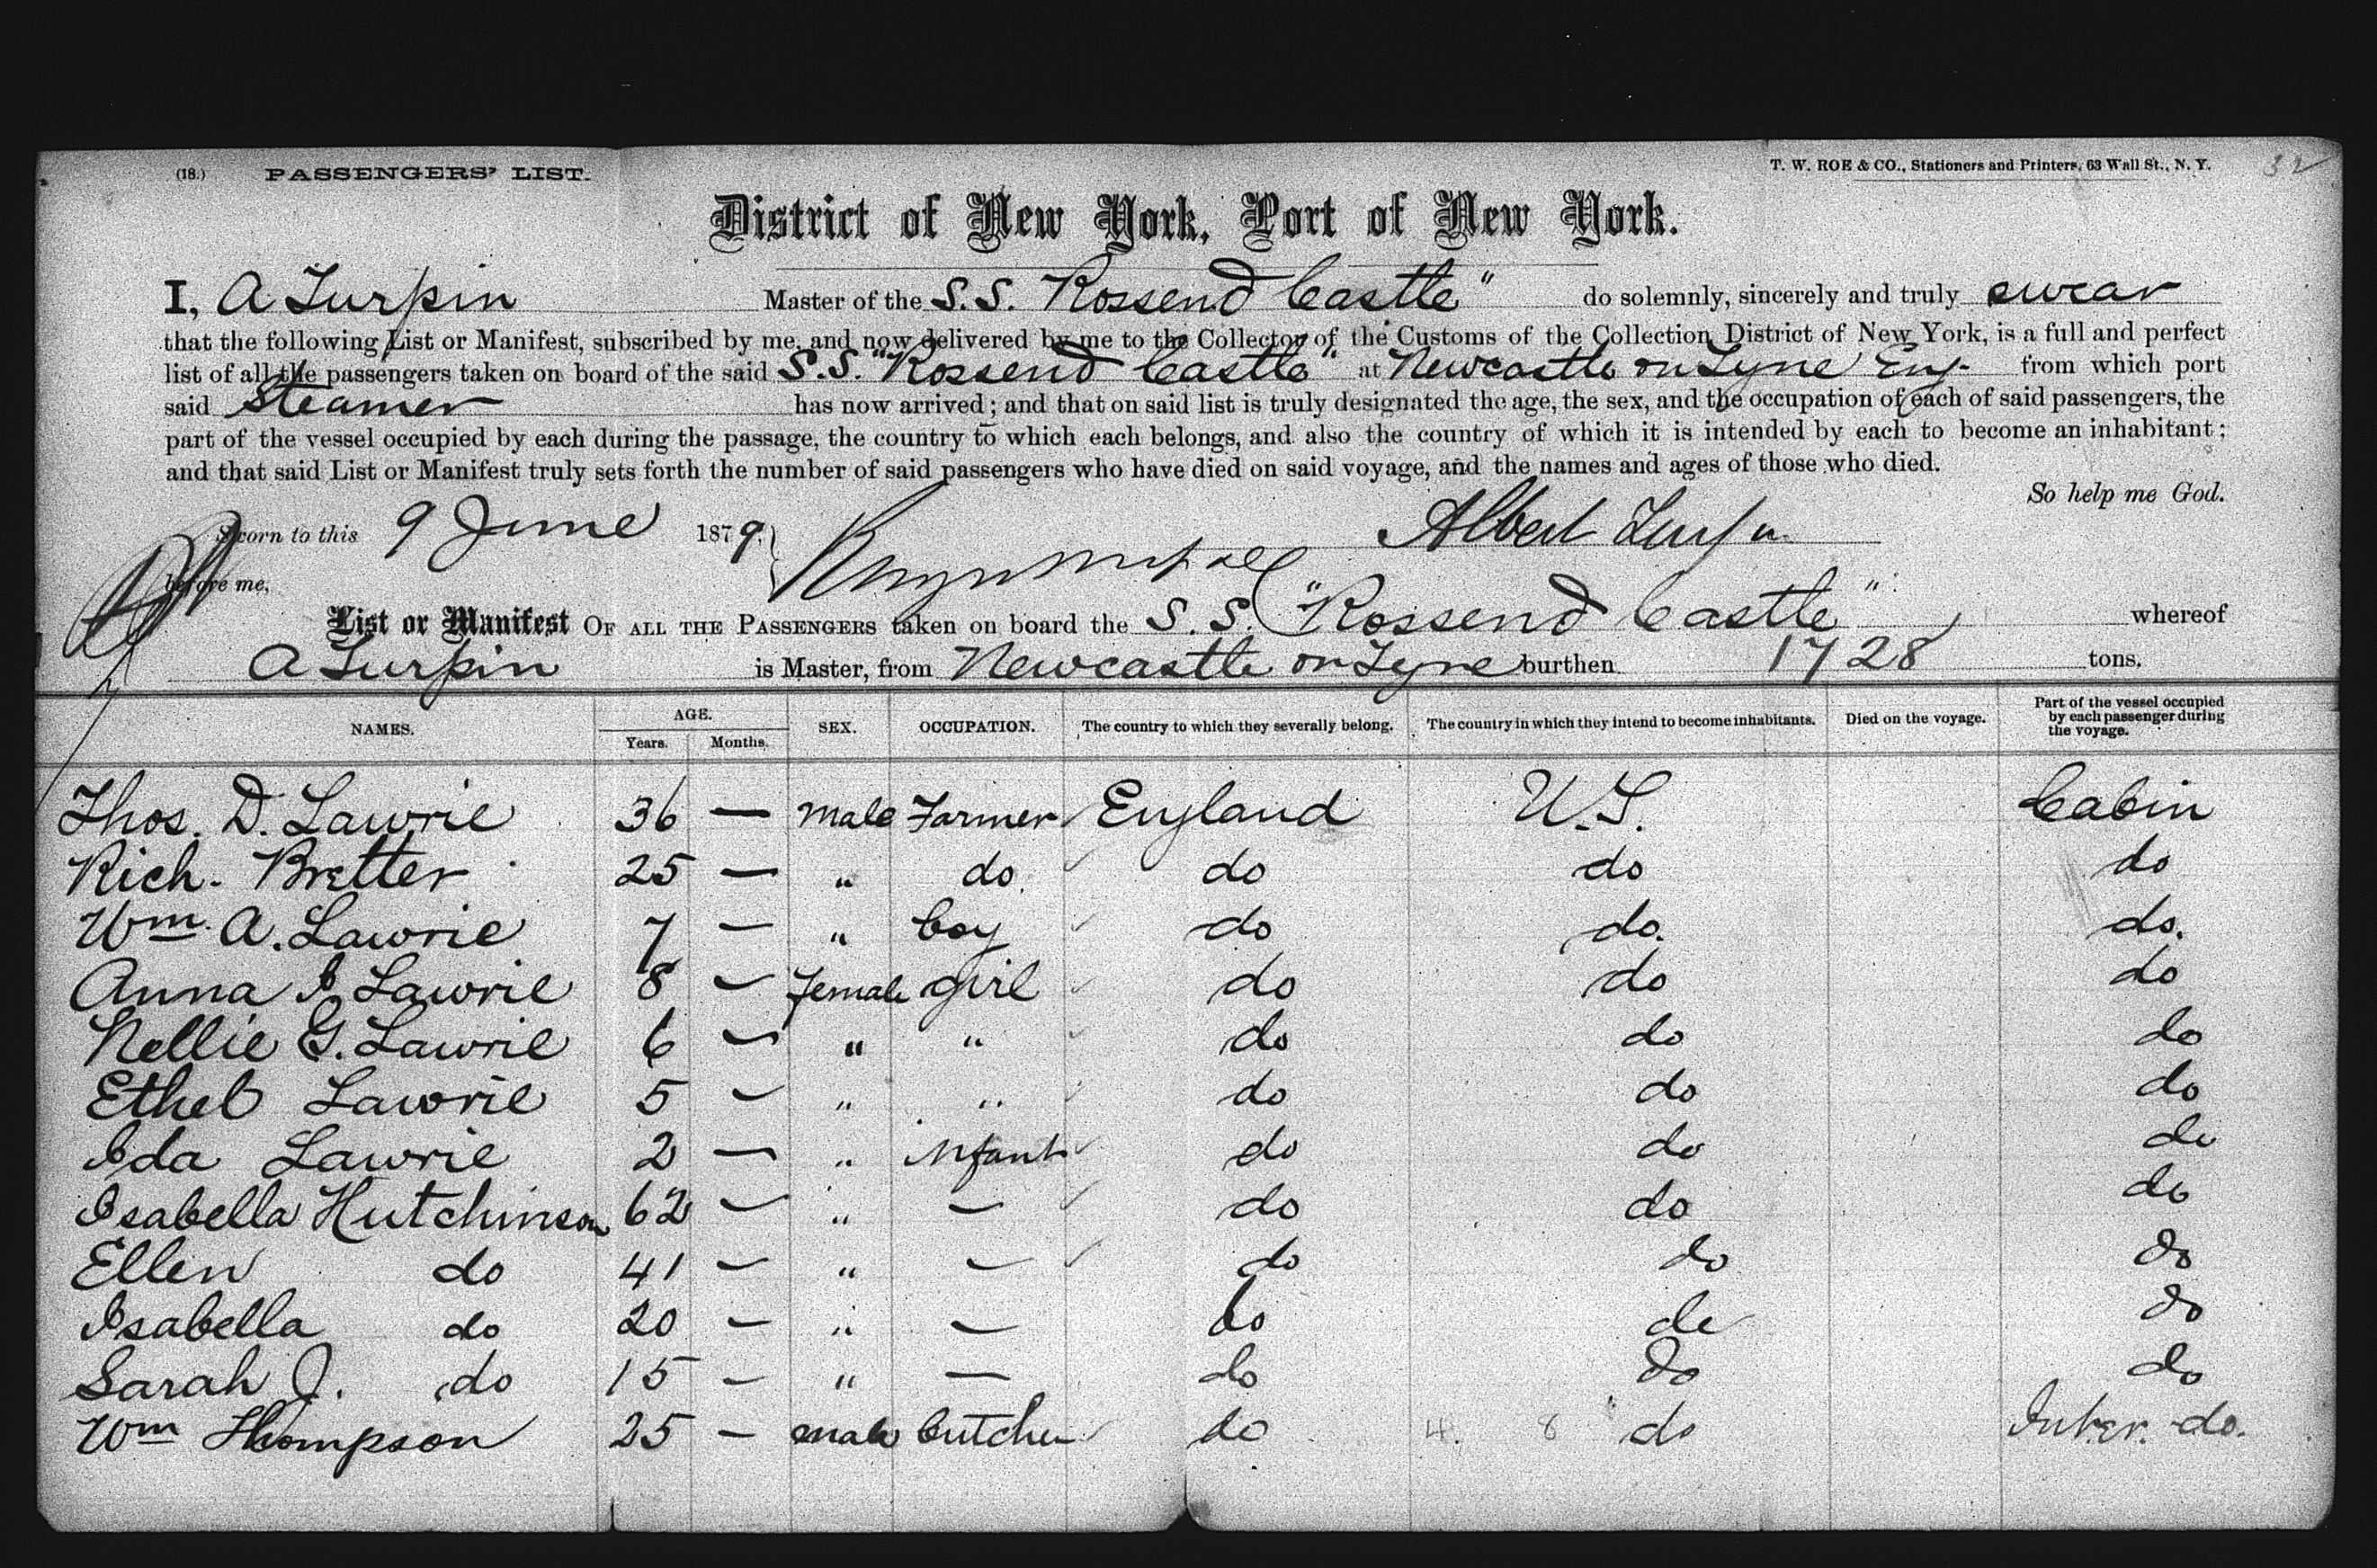 (18.) PASSENGERS' LIST. T. W. ROE & CO., Stationers and Printers, 63 Wall St., N. Y. 32
District of New York, Port of New York.
I, A Turpin Master of the S.S. Rossend Castle" do solemnly, sincerely and truly swear
that the following List or Manifest, subscribed by me, and now delivered by me to the Collector of the Customs of the Collection District of New York, is a full and perfect
list of all the passengers taken on board of the said S.S. "Rossend Castle" at Newcastle on Tyne Eng. from which port
said Steamer has now arrived; and that on said list is truly designated the age, the sex, and the occupation of each of said passengers, the
part of the vessel occupied by each during the passage, the country to which each belongs, and also the country of which it is intended by each to become an inhabitant;
and that said List or Manifest truly sets forth the number of said passengers who have died on said voyage, and the names and ages of those who died.
So help me God.
Sworn to this 9 June 1879. Albert Turpin
before me,
List or Manifest OF ALL THE PASSENGERS taken on board the S. S. "Rossend Castle" whereof
A Turpin is Master, from Newcastle on Tyne burthen 1728 tons.
NAMES. AGE. Years. Months. SEX. OCCUPATION. The country to which they severally belong. The country in which they intend to become inhabitants. Died on the voyage. Part of the vessel occupied by each passenger during the voyage.
Thos. D. Lawrie 36 — male Farmer England U.S. Cabin
Rich. Bretter 25 — " do do do do
Wm. A. Lawrie 7 — " boy do do. do.
Anna I Lawrie 8 — female girl do do do
Nellie G. Lawrie 6 — " " do do do
Ethel Lawrie 5 — " " do do do
Ida Lawrie 2 — " infant do do do
Isabella Hutchinson 62 — " — do do do
Ellen do 41 — " — do do do
Isabella do 20 — " — do do do
Sarah J. do 15 — " — do do do
Wm Thompson 25 — male butcher do 4. 8 do Inter. do.